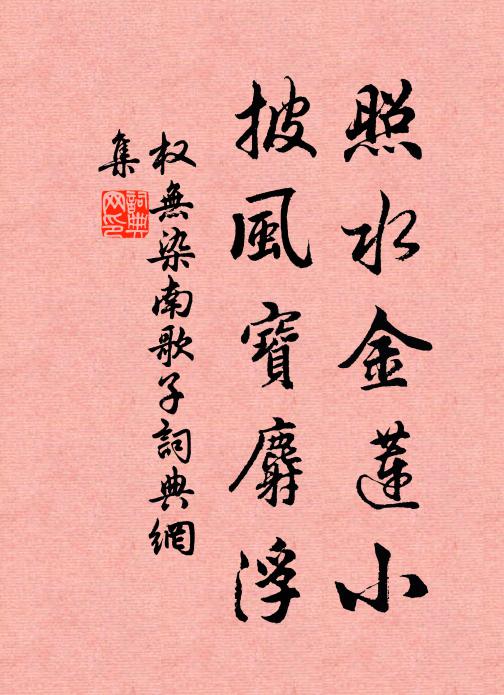 照水金蓮小
披風寶麝浮
权無染南歌子詞典網
集
詞典
网印